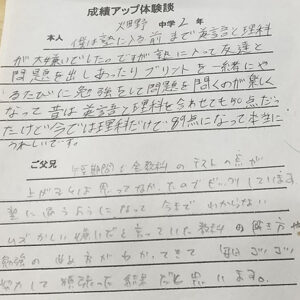 成績アップ体験談
本人 畑野 中学2年
僕は塾に入る前まで英語と理科
が大嫌いでしたですが塾に入って友達と
問題を出しあったりプリントを一緒にや
るたびに勉強をして問題を問くのが楽しく
なって昔は英語と理科を合わせても50点だっ
たけど今では理科だけで91点になって本当に
うれしいです。
ご父兄
と全教科のテストの点が
上がるとは思ってなかったのでびっくりしています
塾に通うようになって今まで わからない
ムズかしい嫌いだと言っていた教科の解き方や
勉強の 方がわかってきて 毎日
努力して頑張った結果だと思います。